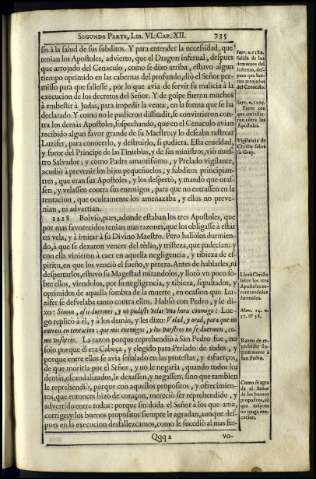 SEGUNDA PARTE, LIB. VI. CAP. XII. 735
sen à la salud de sus subditos. Y para entender la necesidad, que
tenian los Apostoles, advierto, que el Dragon infernal, despues
que arrojado del Cenaculo, como se dixo arriba, estuvo algun
tiempo oprimido en las cabernas del profundo, diò el Señor per-
misso para que saliesse, por lo que avia de servir su malicia à la
execucion de los decretos del Señor. Y de golpe fueron muchos
à embestir à Judas, para impedir la venta, en la forma que se ha
declarado. Y como no le pudieron dissuadir, se convirtieron con-
tra los demàs Apostoles, sospechando, que en el Cenaculo avian
recibido algun favor grande de su Maestro; y lo deseaba rastrear
Lucifer, para conocerlo, y destruirlo, si pudiera. Esta crueldad,
y furor del Principe de las Tinieblas, y de sus ministros, viò nues-
tro Salvador; y como Padre amantissimo, y Prelado vigilante,
acudiò à prevenir los hijos pequeñuelos, y subditos principian-
tes, que eran sus Apostoles, y los despertò, y mandò que oras-
sen, y velassen contra sus enemigos, para que no entrassen en la
tentacion, que ocultamente los amenazaba, y ellos no preve-
nian, ni advertian.
1228 Bolviò, pues, adonde estaban los tres Apostoles, que
por mas favorecidos tenian mas razones, que los obligasse à estar
en vela, y à imitar à su Divino Maestro. Pero hallòlos durmien-
do, à que se dexaron vencer del tedio, y tristeza, que padecian; y
con ella vinieron à caer en aquella negligencia, y tibieza de es-
piritu, en que los venciò el sueño, y pereza. Antes de hablarles, ni
despertarlos, estuvo su Magestad mirandolos, y llorò un poco so-
bre ellos, viendolos, por su negligencia, y tibieza, sepultados, y
oprimidos de aquella sombra de la muerte, en ocasion que Lu-
cifer se desvelaba tanto contra ellos. Hablò con Pedro, y le di-
xo: Simon, assi duermes, y no pudiste velar una hora conmigo? Lue-
go replicò à èl, y à los demàs, y les dixo: Velad, y orad, para que no
entreis en tentacion: que mis enemigos, y los vuestros no se duermen, co-
mo vosotros. La razon porque reprehendiò à San Pedro fue, no
solo porque èl era Cabeça, y elegido para Prelado de todos, y
porque entre ellos se avia señalado en las protestas, y esfuerços,
de que moriria por el Señor, y no le negaria, quando todos los
demàs, escandalizados, le dexassen, y negassen, sino que tambien
le reprehendiò, porque con aquellos propositos, y ofrecimien-
tos, que entonces hizo de coraçon, mereciò ser reprehendido, y
advertido entre todos: porque sin duda el Señor à los que ama,
corrige; y los buenos propositos siempre le agradan, aunque des-
pues en la execucion desfallezcamos, como le sucediò al mas fer-
Qqq 2 vo-
Vigilancia de
Christo sobre
su Grey.
Llorò Christo
sobre los tres
Apostoles
Matt. 26. v.
San Pedro.